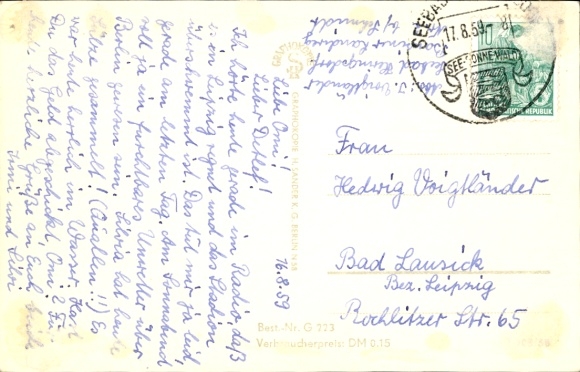 Abs. J. Voigtländer
Seebad Heringsdorf
b/ Schmidt
16.8.59
Liebe Omi!
Lieber Detlef!
Ich hörte heute gerade im Radio, daß
es in Leipzig regnet und das Stadion
überschwemmt ist. Das tut mir ja leid,
gerade am letzten Tag. Am Sonnabend
soll ja ein furchtbares Unwetter über
Berlin gewesen sein. Silvia hat heute
Tiere gesammelt! (Quallen!!) Es
war heute herrlich im Wasser. Hast
Du das Geld abgeschickt, Omi?
herzliche Grüße an Euch beide
Irmi und Silvi
GRAPHOKOPIE H. SANDER K. G. BERLIN N 58
SEEBAD
17.8.59
SEE SONNE WALD
10
DEUTSCHE DEMOKRATISCHE REPUBLIK
Frau
Hedwig Voigtländer
Bad Lausick
Bez. Leipzig
Rochlitzer Str. 65
Best.-Nr. G 723
Verbraucherpreis: DM 0,15